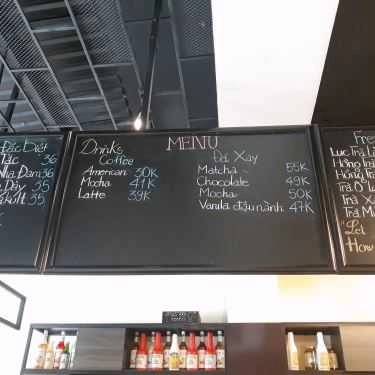 Đặc Biệt
Tắc 36
Nha Đam 36
Dây 35
35
MENU
Drinks
Coffee
American 30K
Mocha 41K
Latte 39K
Đá Xay
Matcha 55K
Chocolate 49K
Mocha 50K
Vanila đậu nành 47K
Lục Trà
Hồng Trà
Hồng Trà
Trà
Trà X
Trà M
"Let
How